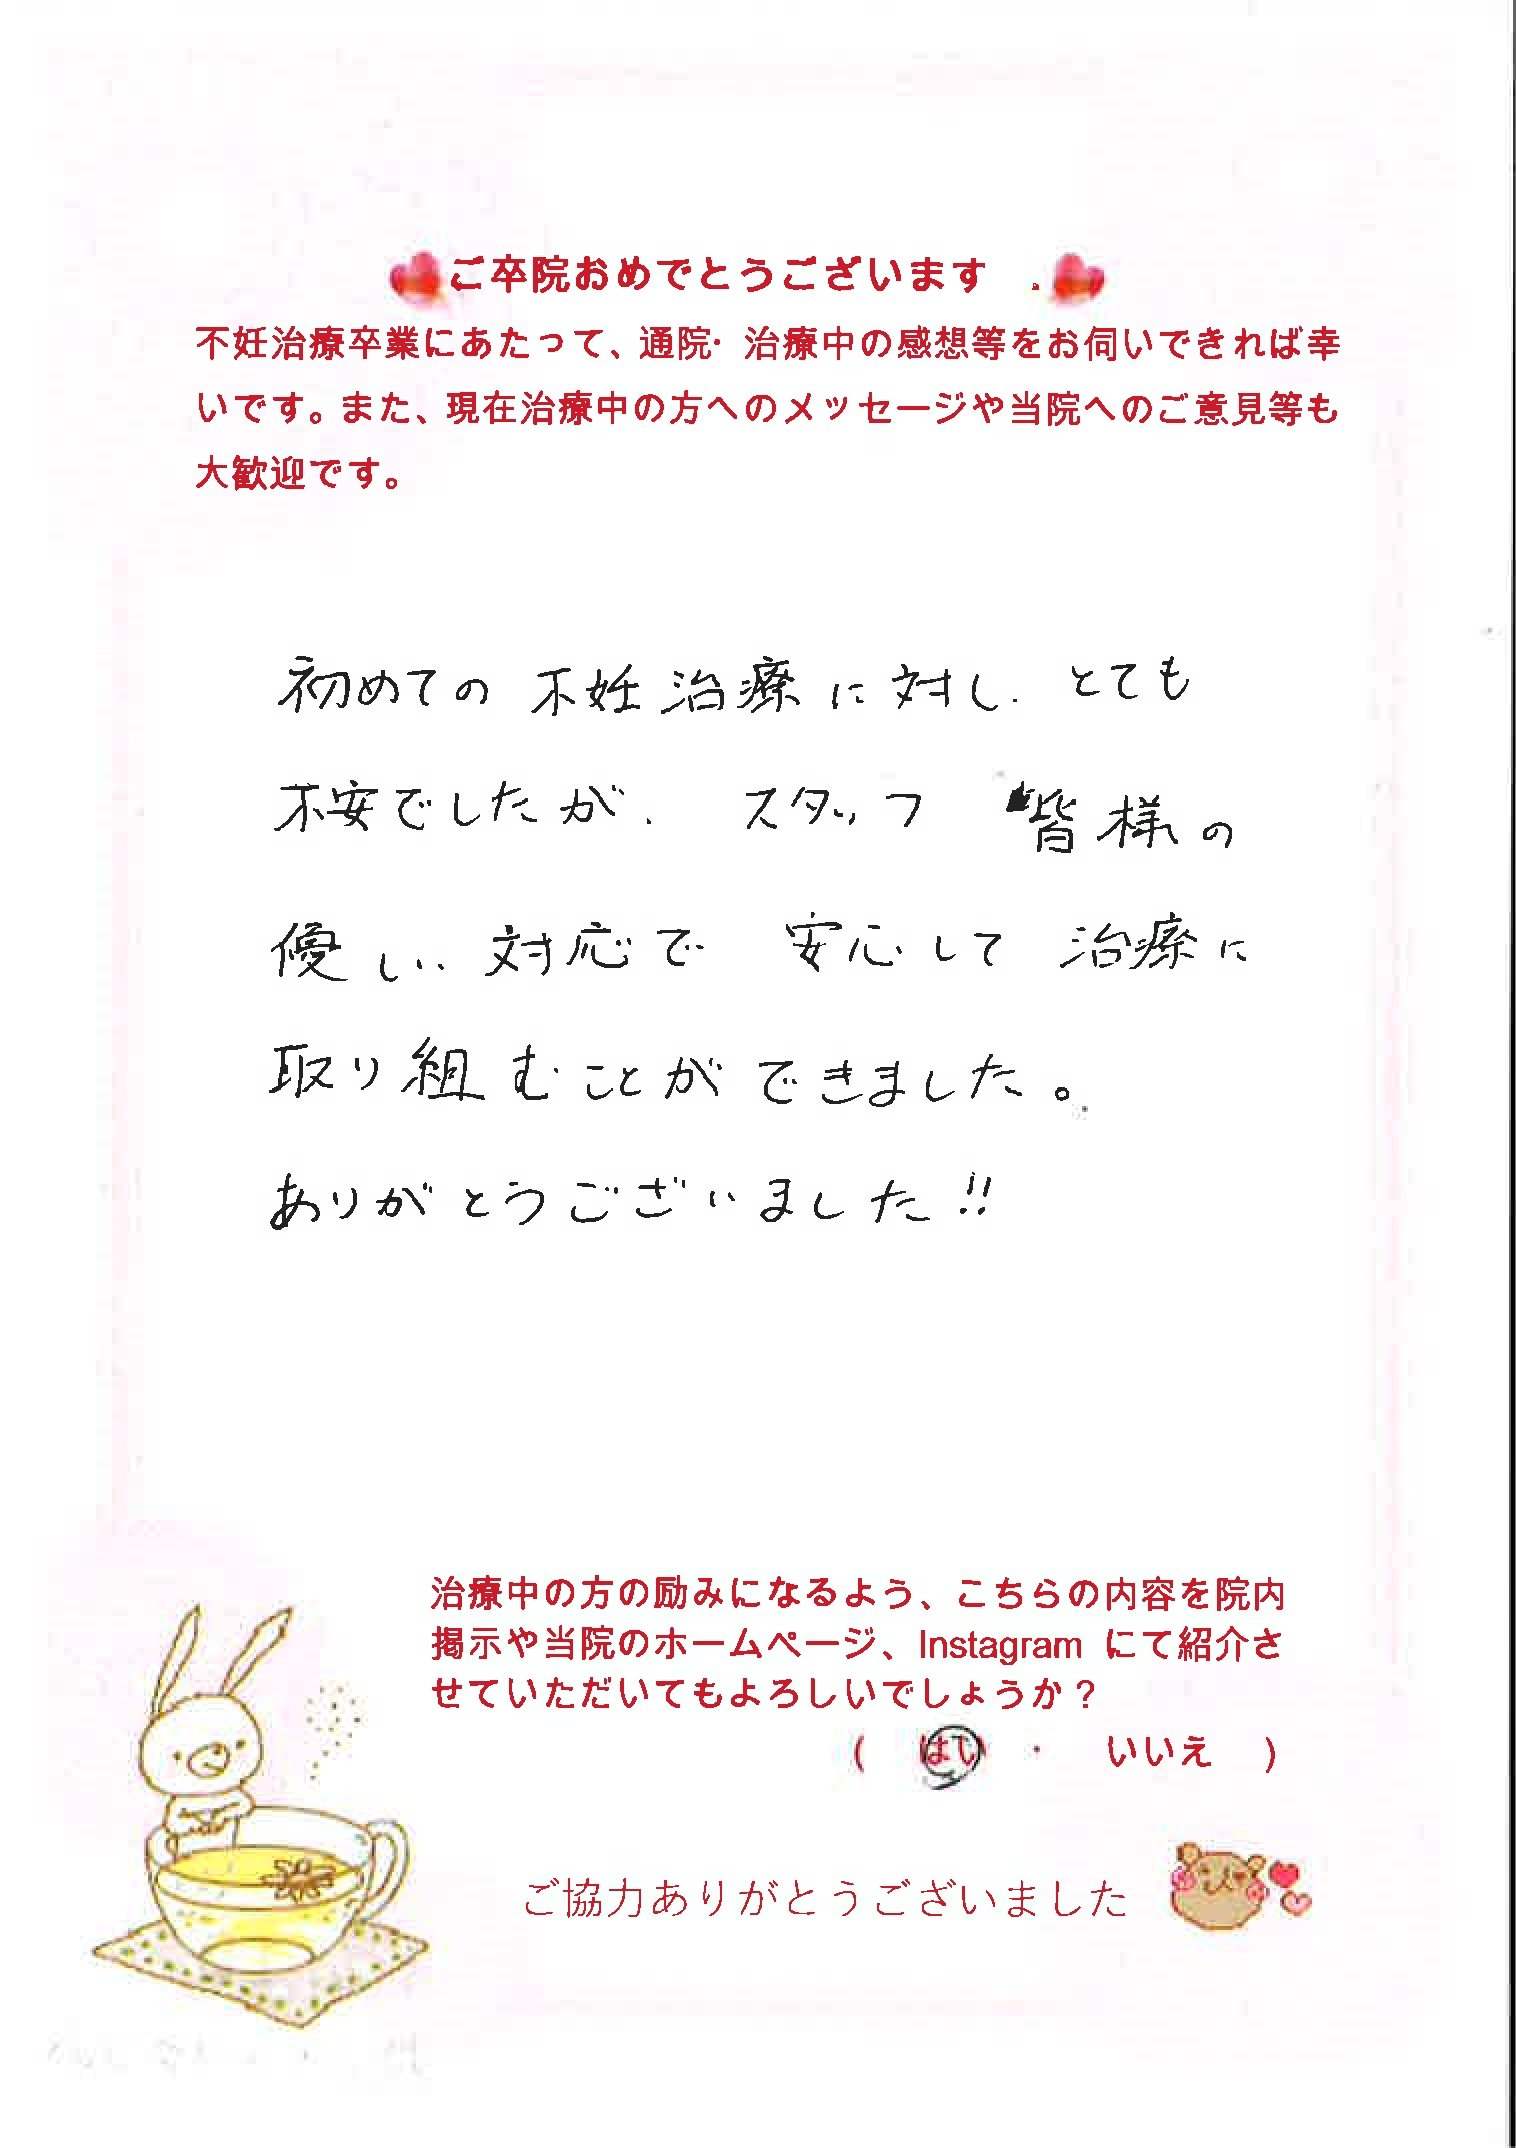 ご卒院おめでとうございます
不妊治療卒業にあたって、通院・治療中の感想等をお伺いできれば幸
いです。また、現在治療中の方へのメッセージや当院へのご意見等も
大歓迎です。
初めての不妊治療に対し、とても
不安でしたが、スタッフ 皆様の
優しい対応で 安心して 治療に
取り組むことができました。
ありがとうございました!!
治療中の方の励みになるよう、こちらの内容を院内
掲示や当院のホームページ、Instagram にて紹介さ
せていただいてもよろしいでしょうか？
( はい ・ いいえ )
ご協力ありがとうございました